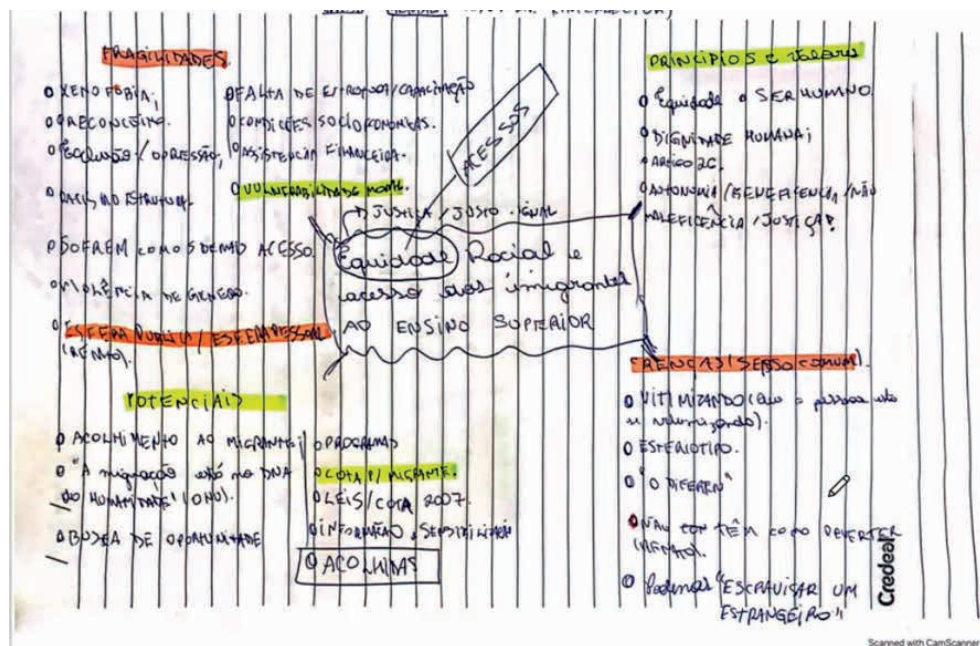 FRAGILIDADES
O XENOFOBIA;
O PRECONCEITO.
O EXCLUSÃO / OPRESSÃO;
RACISMO ESTRUTURAL
O SOFREM COMO ACESSO.
O VIOLÊNCIA DE GENERO.
O ESFERA PUBLICA / ESFERA PESSOAL
O FALTA DE ESTRUTURA/CAPACITAÇÃO
O CONDIÇÕES SOCIOECONOMICAS.
O ASSISTENCIA FINANCEIRA.
O VULNERABILIDADE MORAL
ACESSOS
JUSTIÇA / JUSTO IGUAL
Equidade Racial e
acesso dos imigrantes
AO ENSINO SUPERIOR
PRINCÍPIOS e Valores
O Equidade O SER HUMANO
O DIGNIDADE HUMANA;
O ARTIGO
O AUTONOMIA / BENEFICENCIA / NÃO
MALEFICÊNCIA / JUSTIÇA.
POTENCIAIS
O ACOLHIMENTO AO MIGRANTE;
O "A migração está no DNA
da HUMANIDADE" (ONU).
O BUSCA DE OPORTUNIDADE
O PROGRAMAS
O COTA P/ MIGRANTE.
O LEIS/COTA 2007.
O INFORMAÇÃO
O ACOLHIDAS
CRENCAS (SENSO COMUM).
O VITIMIZANDO (Que a pessoa está
se vitimizando).
O ESTERIOTIPO.
O "O DIFEREN"
O NÃO TÊM COMO REVERTER
O Podemos "ESCRAVISAR UM
ESTRANGEIRO"
Credeal
Scanned with CamScanner